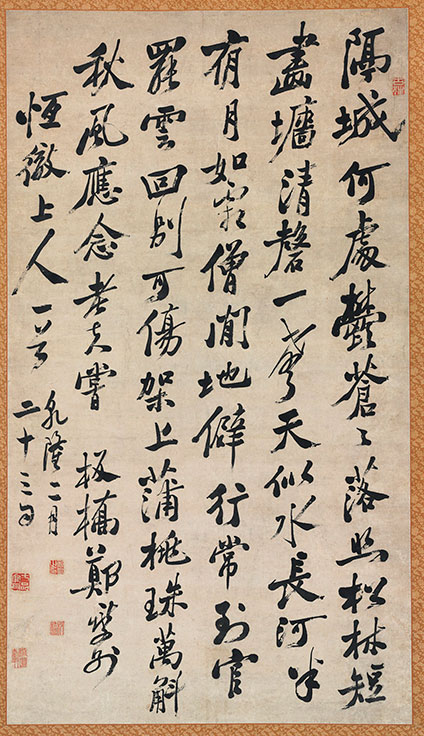 隔城何處鬱蒼々落照松林短
畫墻清磬一聲天似水長河半
有月如霜僧閒地僻行常到官
罷雲回別可傷架上蒲桃珠萬斛
秋風應念老夫嘗 板橋鄭燮
恆徹上人一笑
乾隆二月
二十三日